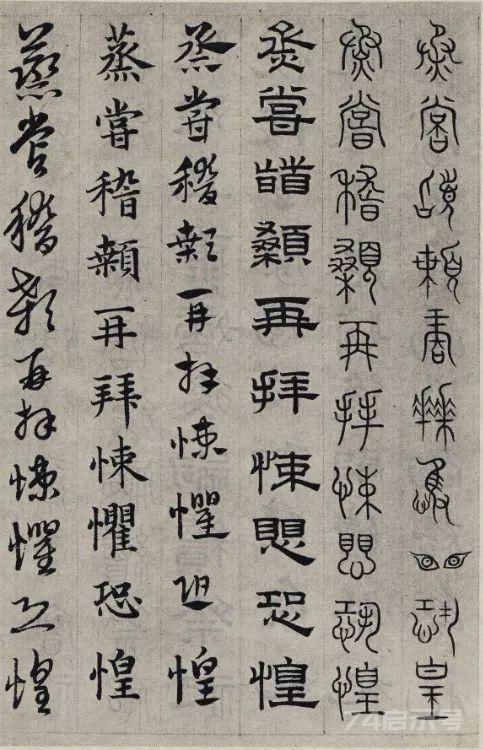 烝嘗稽顙再拜悚懼恐皇
烝嘗稽顙再拜悚愳恐惶
烝嘗稽顙再拜悚愳恐惶
烝嘗稽顙再拜悚懼恐惶
蒸嘗稽顙再拜悚懼恐惶
蒸嘗稽顙再拜悚懼恐惶
74启示号